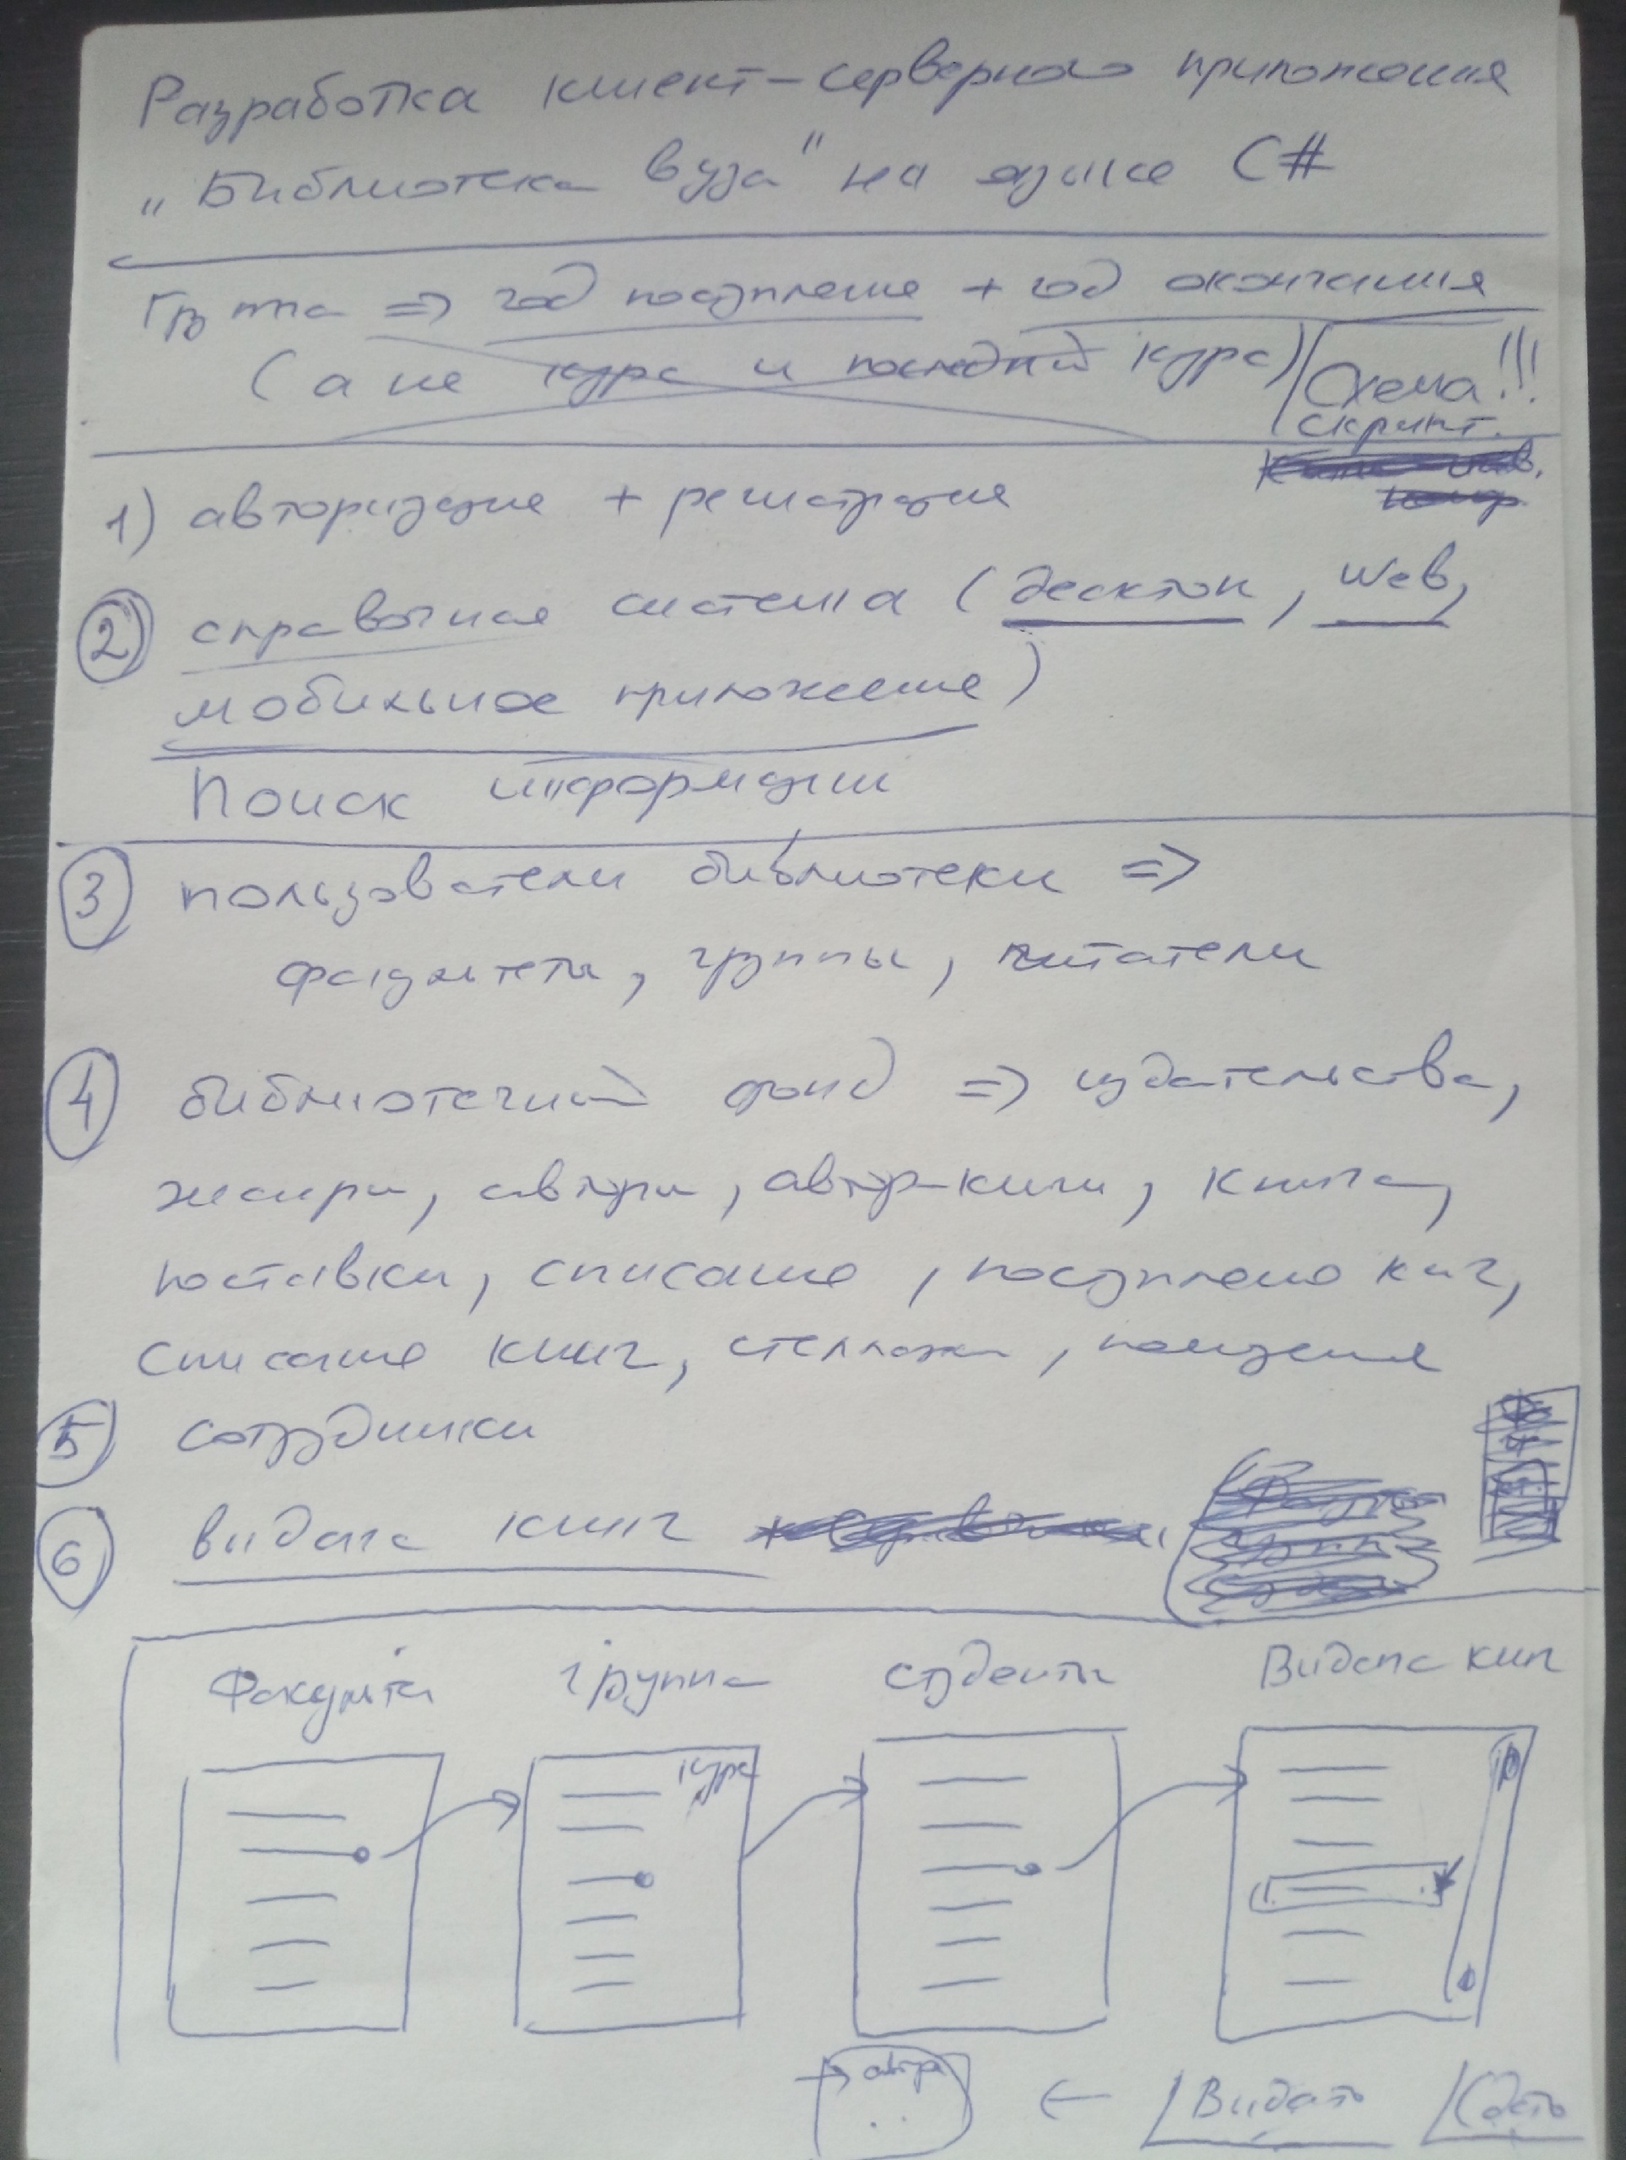 Разработка клиент-серверного приложения
„Библиотека вуза" на языке C#
Группа => год поступления + год окончания
(а не курс и последний курс)
Схема!!!
скрипт.
1) авторизация + регистрация
2 справочная система (десктоп, Web,
мобильное приложение)
Поиск информации
3 пользователи библиотеки =>
факультеты, группы, читатели
4 библиотечный фонд => издательства,
жанры, авторы, автор-книги, книга,
поставки, списание, поступление книг,
списание книг, стеллажи, помещения
5 сотрудники
6 выдача книг
Факультет группа студенты Выдача книг
курс
авторы
<- Выдать Сдать